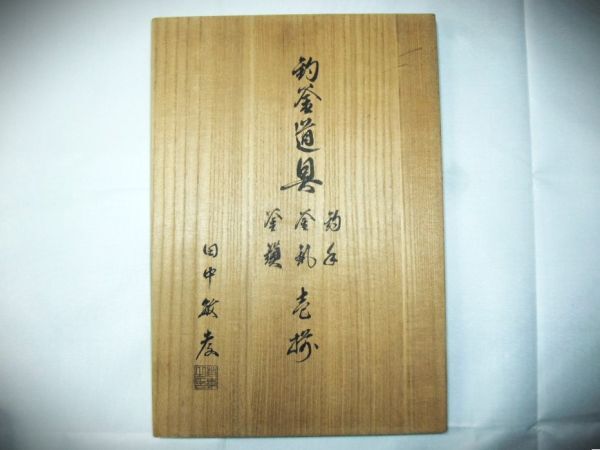 釣釜道具
釣手
釜釻
釜鎖
壱揃
田中敏